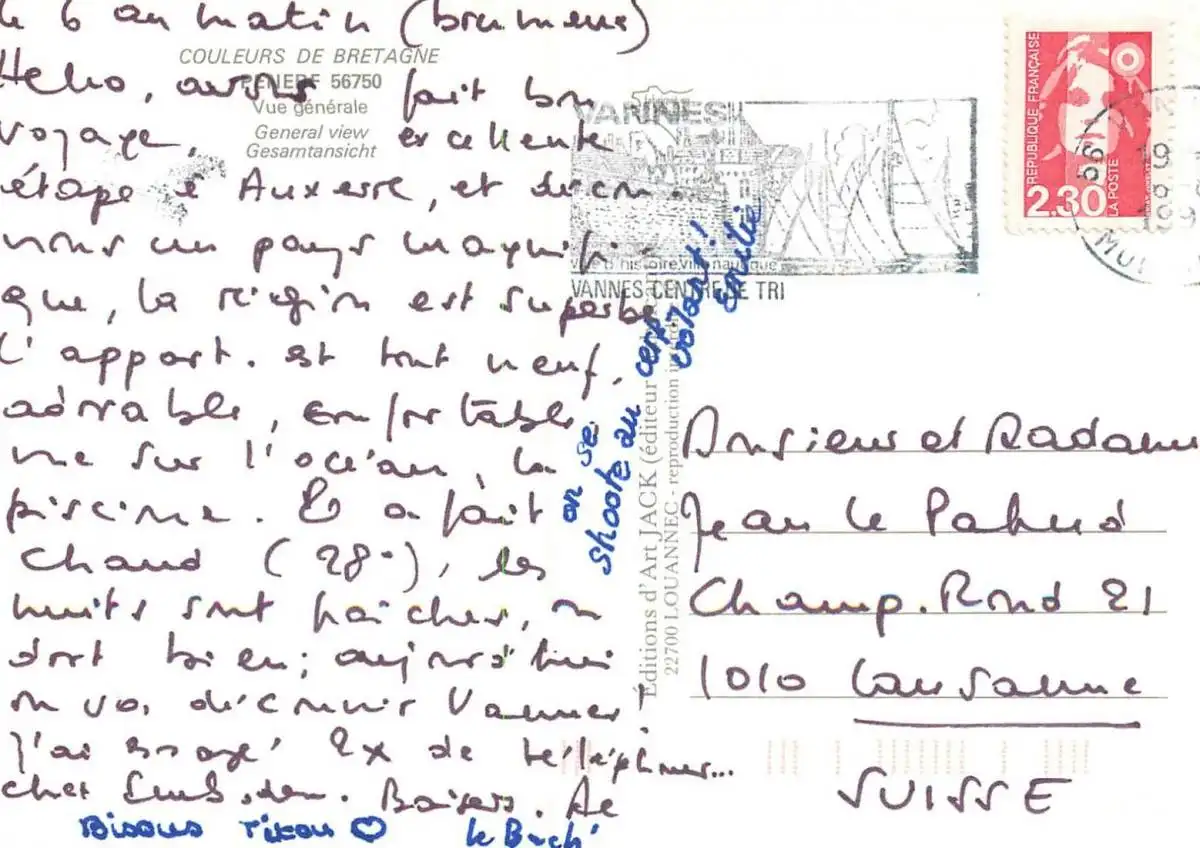 le 6 au matin (brumeux)
COULEURS DE BRETAGNE
PENERF 56750
Vue générale
General view
Gesamtansicht
Hello, avons fait bon
voyage, excellente
étape à Auxerre, et
nous un pays magnifi-
que, la région est superbe
l'appart. est tout neuf,
adorable, confortable
vue sur l'océan, la
piscine. Il a fait
chaud (28°), les
nuits sont fraîches, on
dort bien; aujourd'hui
on va découvrir Vannes!
J'ai essayé 2x de téléphoner...
chez Baisers. 
Bisous Titou ♡
on se
shoote au cerf
volant!
Emilie
Éditions d'Art JACK (éditeur
22700 LOUANNEC - reproduction
VANNES
ville d'histoire, ville nautique
VANNES CENTRE DE TRI
REPUBLIQUE FRANÇAISE
2.30
LA POSTE
56
MOR
19
Monsieur et Madame
Jean le
Champ-Rond 21
1010 Lausanne
SUISSE